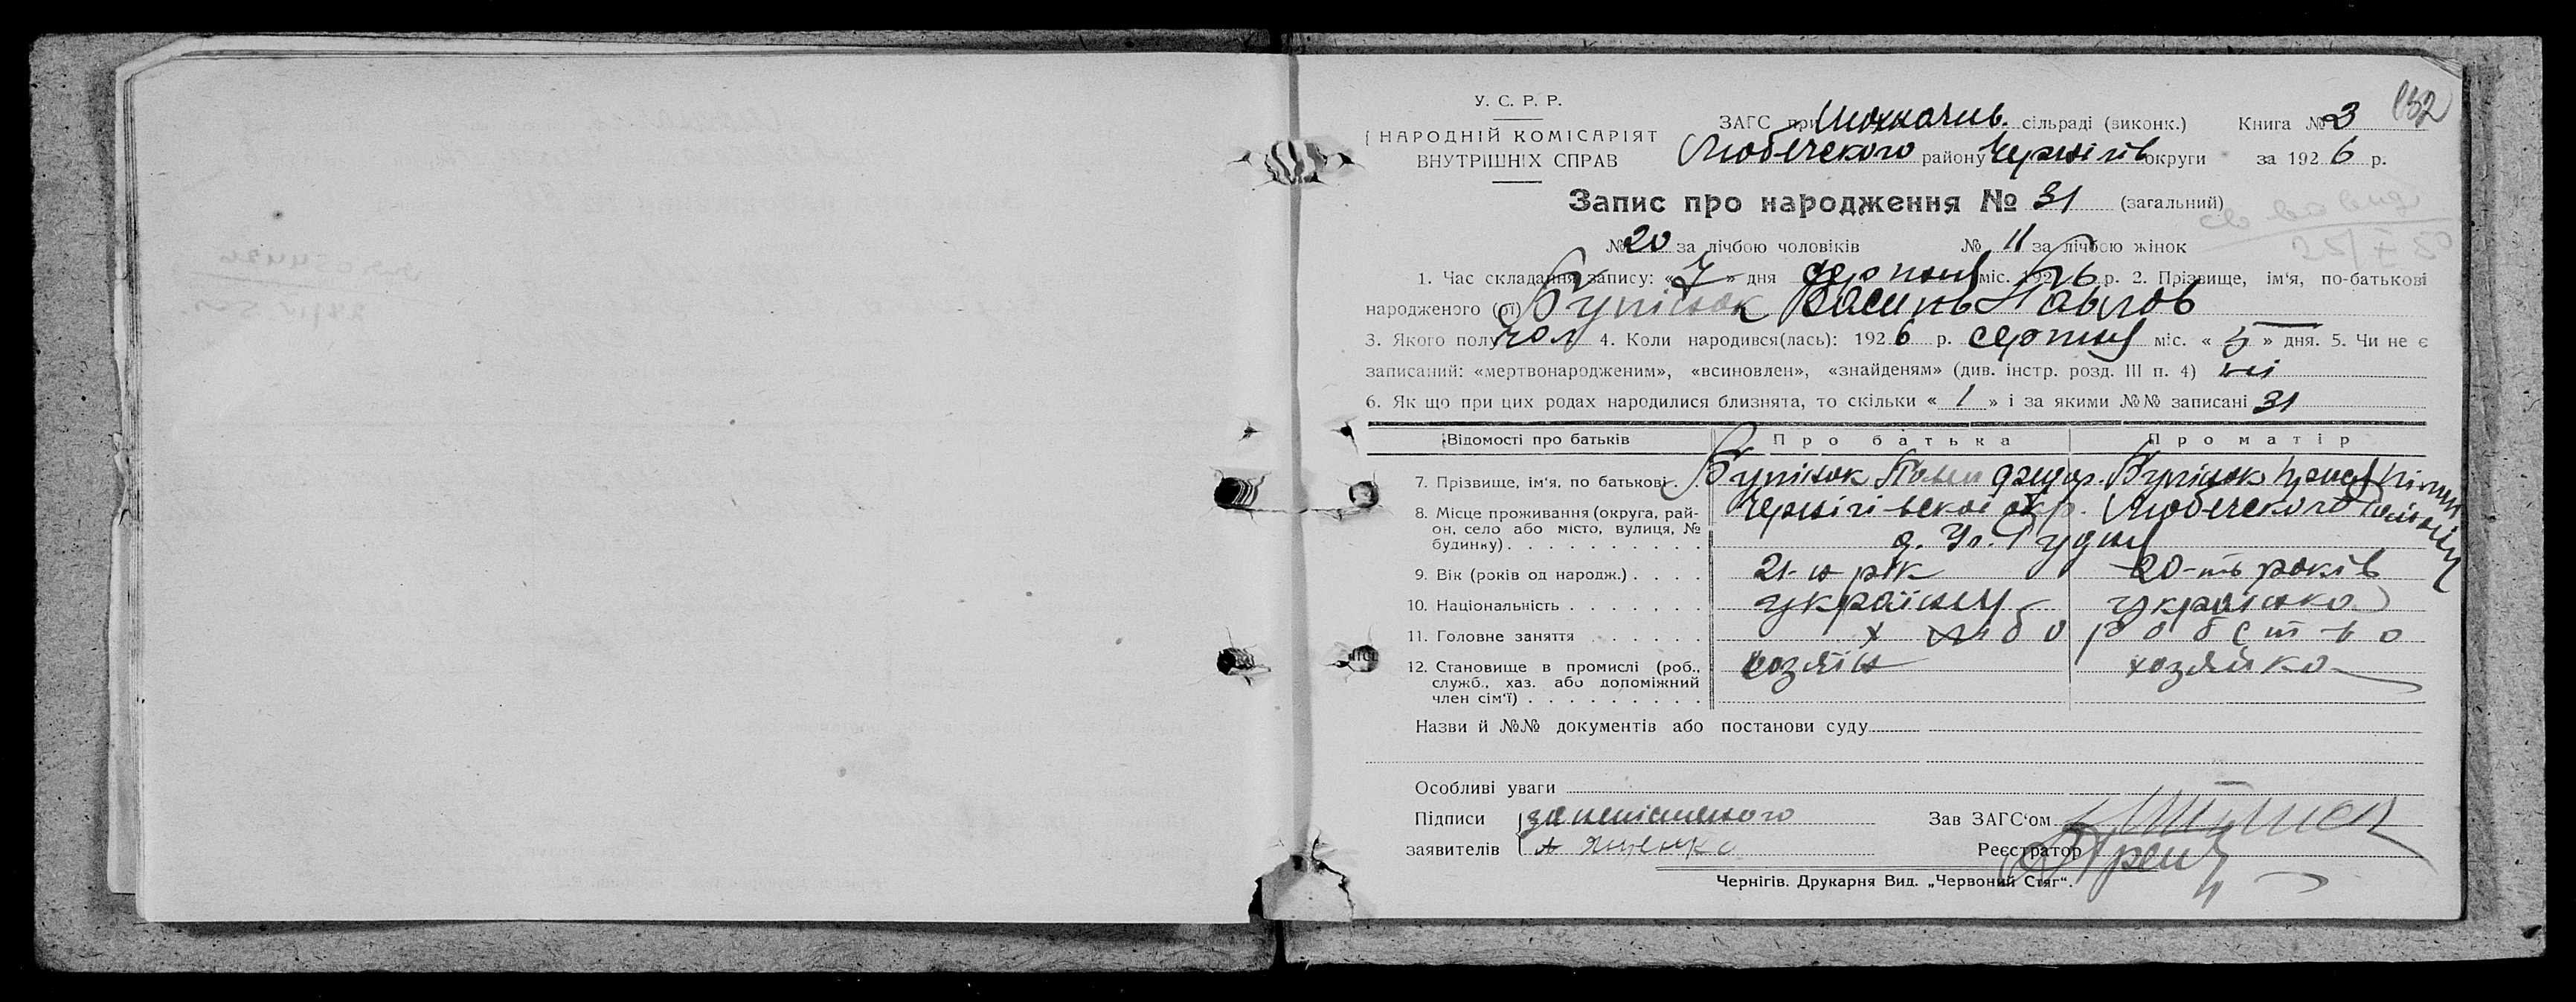 132
У. С. Р. Р.
НАРОДНІЙ КОМІСАРІЯТ
ВНУТРІШНІХ СПРАВ
ЗАГС при сільраді (виконк.) Книга № 3
Любечского району Чернігів округи за 1926 р.
Запис про народження № 31 (загальний)
№ 20 за лічбою чоловіків № 11 за лічбою жінок
1. Час складання запису: « 7 » дня серпня міс. 1926 р. 2. Прізвище, ім'я, по-батькові
народженого (ої) Василь Павлов
3. Якого полу чол 4. Коли народився(лась): 1926 р. серпня міс. « 5 » дня. 5. Чи не є
записаний: «мертвонародженим», «всиновлен», «знайденям» (див. інстр. розд. III п. 4) ні
6. Як що при цих родах народилися близнята, то скільки « 1 » і за якими №№ записані 31
Відомості про батьків Про батька Про матір
7. Прізвище, ім'я, по батькові
8. Місце проживання (округа, рай-
он, село або місто, вулиця, №
будинку) Чернігівскоі окр. Любечского
9. Вік (років од народж.) 21-н рік 20-ть років
10. Національність українц українка
11. Головне заняття хлібо робство
12. Становище в промислі (роб.,
служб., хаз. або допоміжний
член сім'ї) хозяїн хозяйка
Назви й №№ документів або постанови суду
Особливі уваги
Підписи за неписменого Зав ЗАГС'ом
заявителів Ященко Реєстратор
Чернігів. Друкарня Вид. „Червоний Стяг".